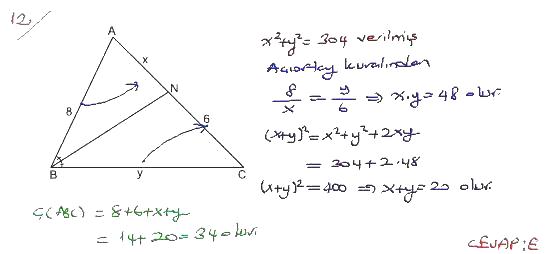 12.
A
x
N
8
6
B
y
C
x²+y² = 304 verilmiş
Açıortay kuralından
8/x = y/6 ⇒ x.y = 48 olur.
(x+y)² = x²+y²+2xy
= 304+2.48
(x+y)² = 400 ⇒ x+y = 20 olur.
Ç(ABC) = 8+6+x+y
= 14+20 = 34 olur.
CEVAP:E